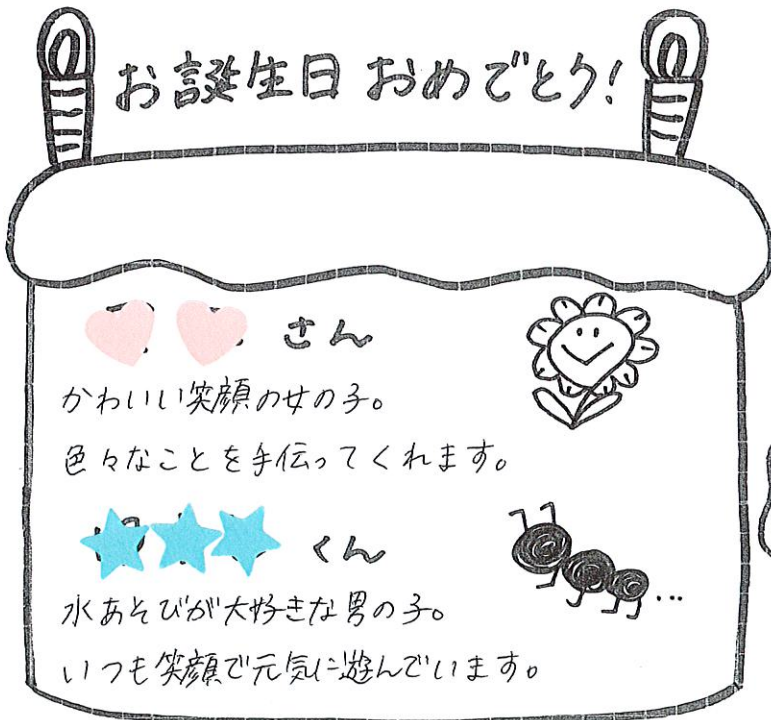 お誕生日 おめでとう!
さん
かわいい笑顔の女の子。
色々なことを手伝ってくれます。
くん
水あそびが大好きな男の子。
いつも笑顔で元気に遊んでいます。